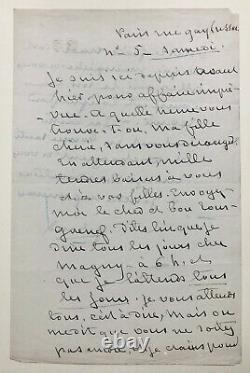 Paris rue gay lussac
n° 5 - samedi.
Je suis ici depuis avant
hier, pour affaire impré-
vue. A quelle heure vous
trouve-t-on, ma fille
chérie, sans vous déranger.
En attendant, mille
tendres baisers à vous
et à vos filles. Envoyez
moi le cher et bon
Dites lui que je
dîne tous les jours chez
Magny - à 6 h. et
que je l'attends tous
les jours. Je vous attends
tous, c'est à dire, mais on
me dit que vous ne sortez
pas encore, et je crains pour